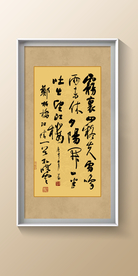 霧裏山疑失雷鳴
雨未休夕陽開一半
吐出望江樓
鄭板橋江晴一首